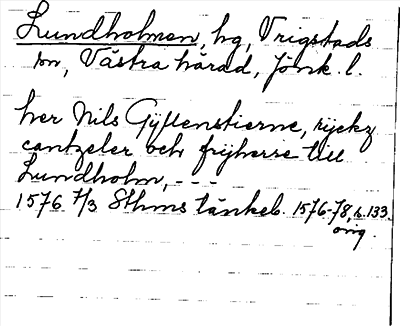 Lundholmen, hg, Vrigstads
sn, Västra härad, Jönk. l.
her Nils Gyllenstierne, rijckz
cantzeler och frijherre till
Lundholm, - - -
1576 7/3 Sthms tänkeb. 1576-78, s. 133.
orig.